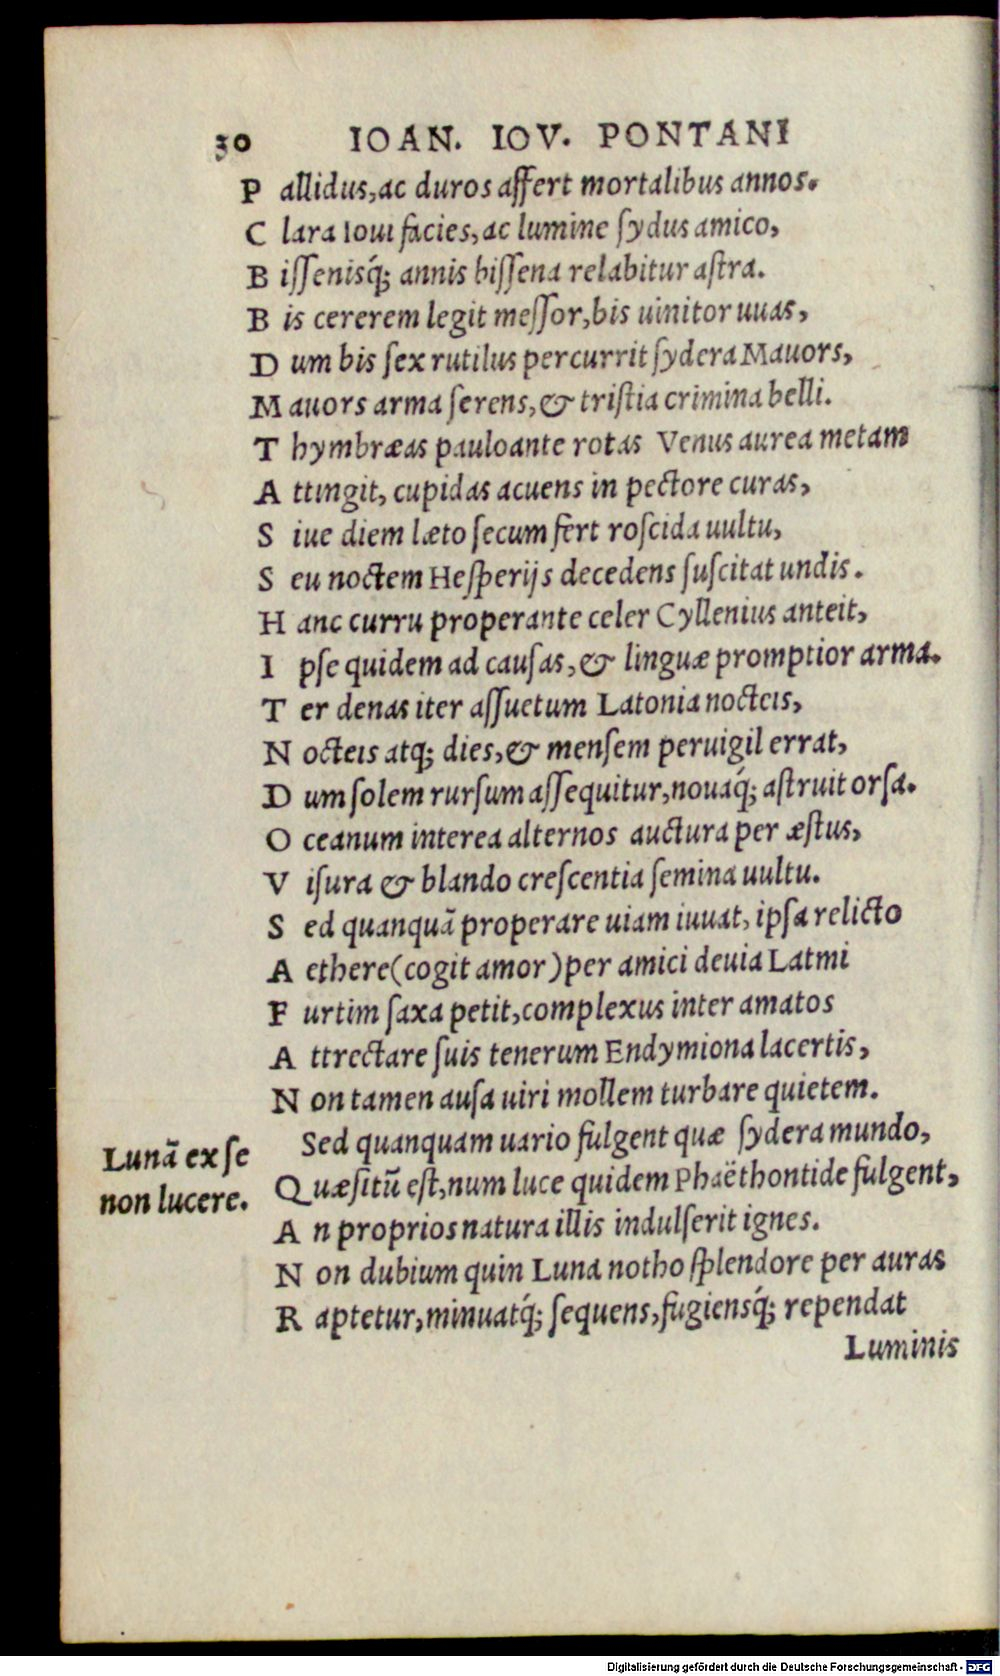 30 IOAN. IOV. PONTANI
P allidus, ac duros affert mortalibus annos.
C lara Ioui facies, ac lumine ſydus amico,
B iſſenisq́; annis biſſena relabitur aſtra.
B is cererem legit meſſor, bis uinitor uuas,
D um bis ſex rutilus percurrit ſydera Mauors,
M auors arma ſerens, & triſtia crimina belli.
T hymbræas pauloante rotas Venus aurea metam
A ttingit, cupidas acuens in pectore curas,
S iue diem læto ſecum fert roſcida uultu,
S eu noctem Heſperijs decedens ſuſcitat undis.
H anc curru properante celer Cyllenius anteit,
I pſe quidem ad cauſas, & linguæ promptior arma.
T er denas iter aſſuetum Latonia nocteis,
N octeis atq; dies, & menſem peruigil errat,
D um ſolem rurſum aſſequitur, nouaq́; aſtruit orſa.
O ceanum interea alternos auctura per æſtus,
V iſura & blando creſcentia ſemina uultu.
S ed quanquã properare uiam iuuat, ipſa relicto
A ethere (cogit amor) per amici deuia Latmi
F urtim ſaxa petit, complexus inter amatos
A ttrectare ſuis tenerum Endymiona lacertis,
N on tamen auſa uiri mollem turbare quietem.
Sed quanquam uario fulgent quæ ſydera mundo,
Lunã ex ſe
non lucere.
Q uæſitũ eſt, num luce quidem Phaëthontide fulgent,
A n proprios natura illis indulſerit ignes.
N on dubium quin Luna notho ſplendore per auras
R aptetur, minuatq́; ſequens, fugiensq́; rependat
Luminis
Digitalisierung gefördert durch die Deutsche Forschungsgemeinschaft - DFG